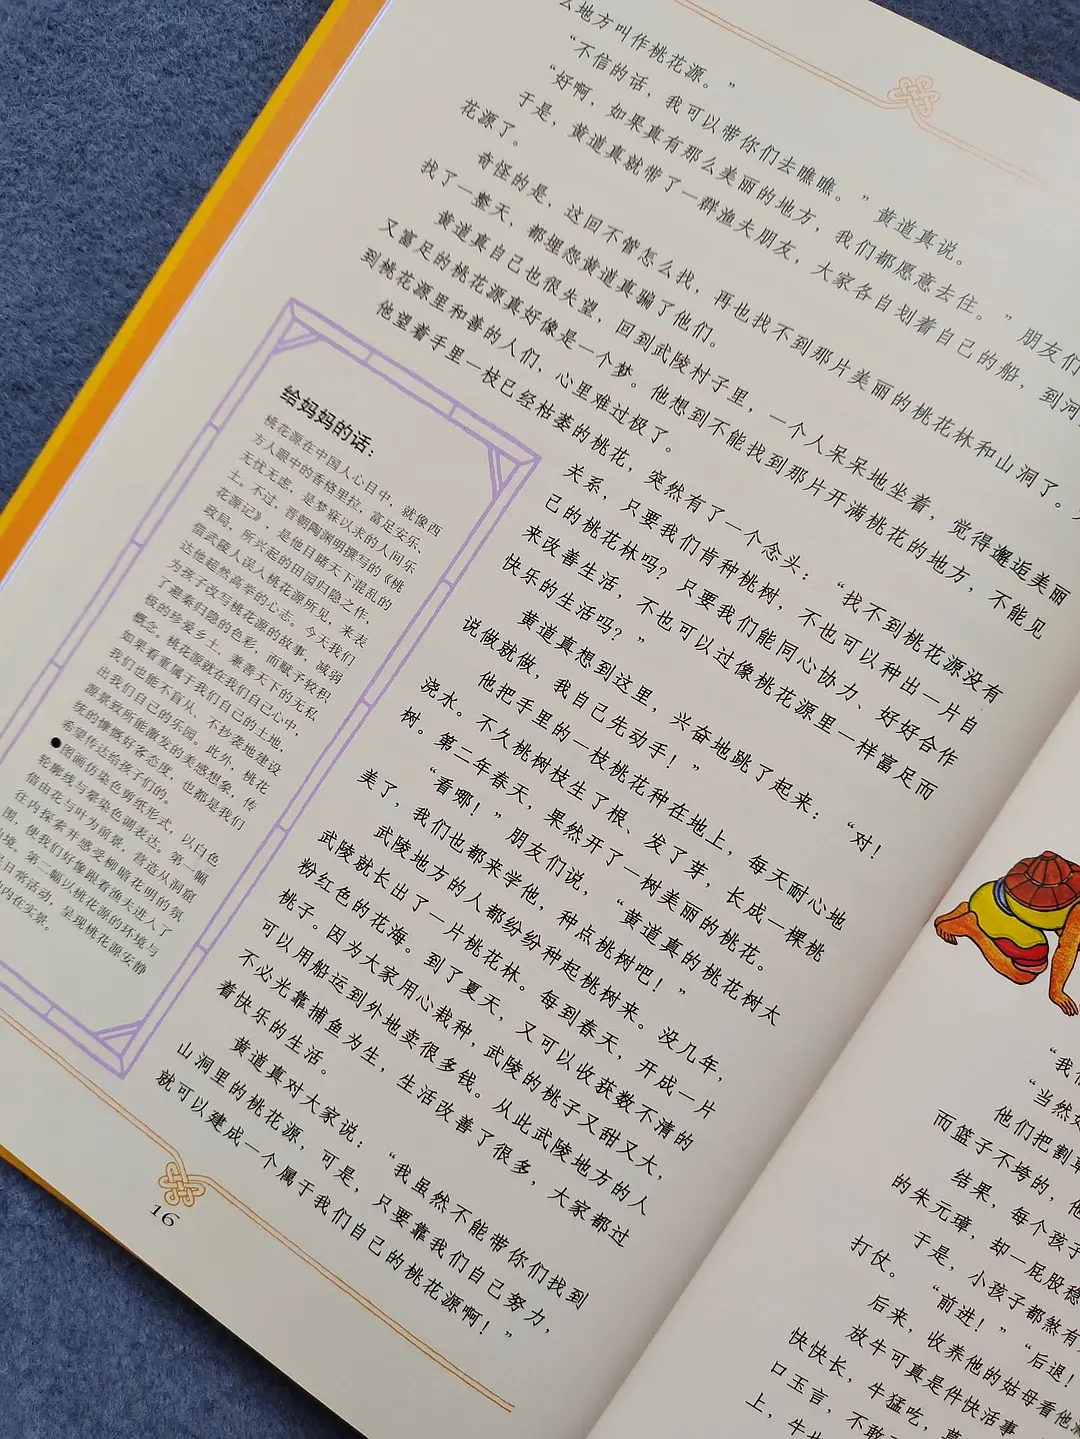 么地方叫作桃花源。”
“不信的话，我可以带你们去瞧瞧。”黄道真说。
“好啊，如果真有那么美丽的地方，我们都愿意去住。”朋友们
于是，黄道真就带了一群渔夫朋友，大家各自划着自己的船，到河
花源了。
奇怪的是，这回不管怎么找，再也找不到那片美丽的桃花林和山洞了。
找了一整天，都埋怨黄道真骗了他们。
黄道真自己也很失望，回到武陵村子里，一个人呆呆地坐着，觉得邂逅美丽
又富足的桃花源真好像是一个梦。他想到不能找到那片开满桃花的地方，不能见
到桃花源里和善的人们，心里难过极了。
他望着手里一枝已经枯萎的桃花，突然有了一个念头：“找不到桃花源没有
关系，只要我们肯种桃树，不也可以种出一片自
己的桃花林吗？只要我们能同心协力、好好合作
来改善生活，不也可以过像桃花源里一样富足而
快乐的生活吗？”
黄道真想到这里，兴奋地跳了起来：“对！
说做就做，我自己先动手！”
他把手里的一枝桃花种在地上，每天耐心地
浇水。不久桃树枝生了根、发了芽，长成一棵桃
树。第二年春天，果然开了一树美丽的桃花。
“看哪！”朋友们说，“黄道真的桃花树太
美了，我们也都来学他，种点桃树吧！”
武陵地方的人都纷纷种起桃树来。没几年，
武陵就长出了一片桃花林。每到春天，开成一片
粉红色的花海。到了夏天，又可以收获数不清的
桃子。因为大家用心栽种，武陵的桃子又甜又大，
可以用船运到外地卖很多钱。从此武陵地方的人
不必光靠捕鱼为生，生活改善了很多，大家都过
着快乐的生活。
黄道真对大家说：“我虽然不能带你们找到
山洞里的桃花源，可是，只要靠我们自己努力，
就可以建成一个属于我们自己的桃花源啊！”
给妈妈的话：
桃花源在中国人心目中，就像西
方人眼中的香格里拉，富足安乐、
无忧无虑，是梦寐以求的人间乐
土。不过，晋朝陶渊明撰写的《桃
花源记》，是他目睹天下混乱的
政局，所兴起的田园归隐之作，
借武陵人误入桃花源所见，来表
达他超然高举的心志。今天我们
为孩子改写桃花源的故事，减弱
了避秦归隐的色彩，而赋予较积
极的珍爱乡土、兼善天下的无私
概念。桃花源就在我们自己心中，
如果看重属于我们自己的土地，
我们也能不盲从、不抄袭地建设
出我们自己的乐园。此外，桃花
源景致所能激发的美感想象，传
统的慷慨好客态度，也都是我们
希望传达给孩子们的。
●图画仿染色剪纸形式，以白色
轮廓线与晕染色调表达。第一幅
借由花与叶为前景，营造从洞窟
往内探索并感受柳暗花明的氛
围，使我们好像跟着渔夫进入了
境。第二幅以桃花源的环境与
日常活动，呈现桃花源安静
内在实景。
16
“我们
“当然好
他们把割草
而篮子不垮的，他
结果，每个孩子
的朱元璋，却一屁股稳
于是，小孩子都煞有
打仗。
“前进！”“后退！
后来，收养他的姑母看他
放牛可真是件快活事
快快长，牛猛吃，
口玉言，不敢
上，牛